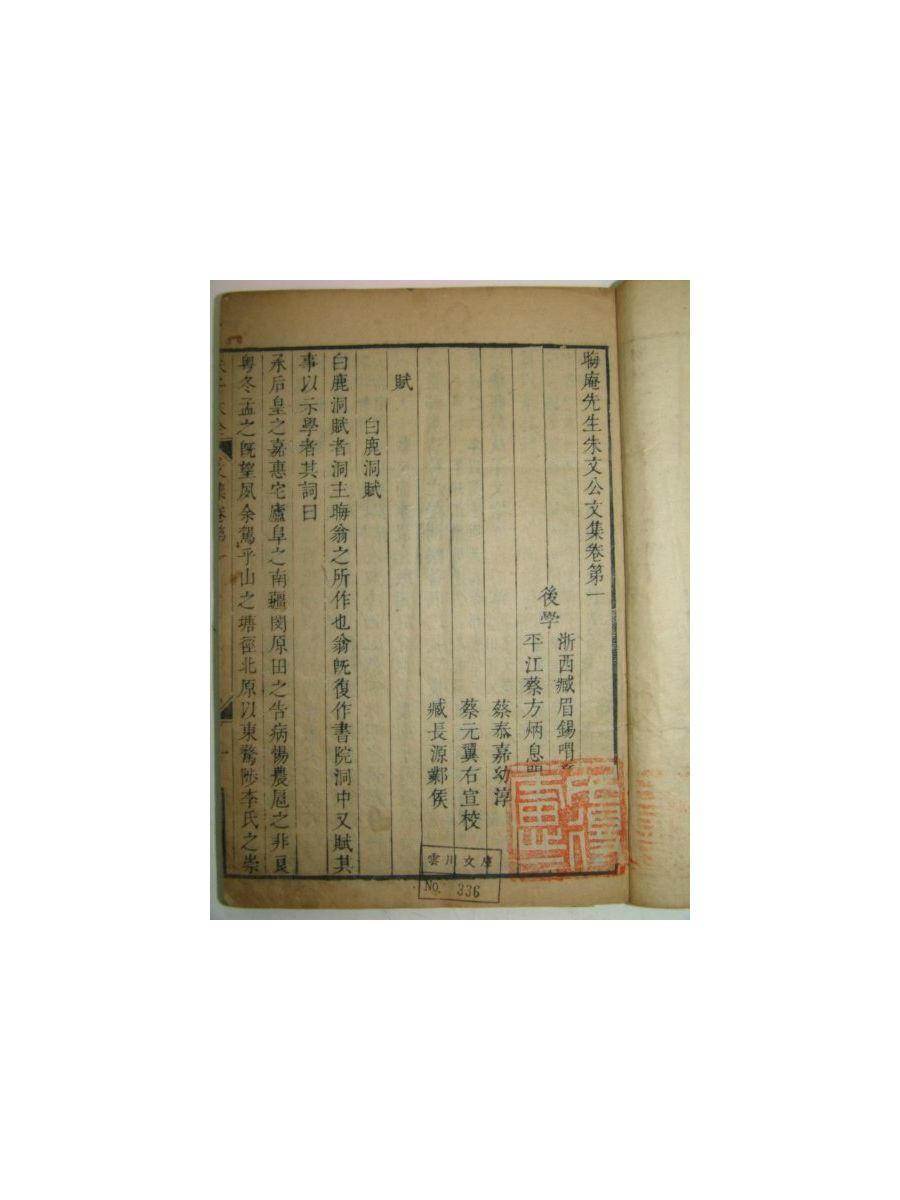 晦庵先生朱文公文集卷第一
後學
浙西臧眉錫喟
平江蔡方炳息
蔡泰嘉幼淳
蔡元翼右宣校
臧長源鄴侯
賦
白鹿洞賦
白鹿洞賦者洞主晦翁之所作也翁既復作書院洞中又賦其
事以示學者其詞曰
承后皇之嘉惠宅廬阜之南疆閔原田之告病惕農扈之非良
粤冬孟之既望夙余駕乎山之塘徑北原以東騖陟李氏之崇
文集卷第一
雲川文庫
No. 336